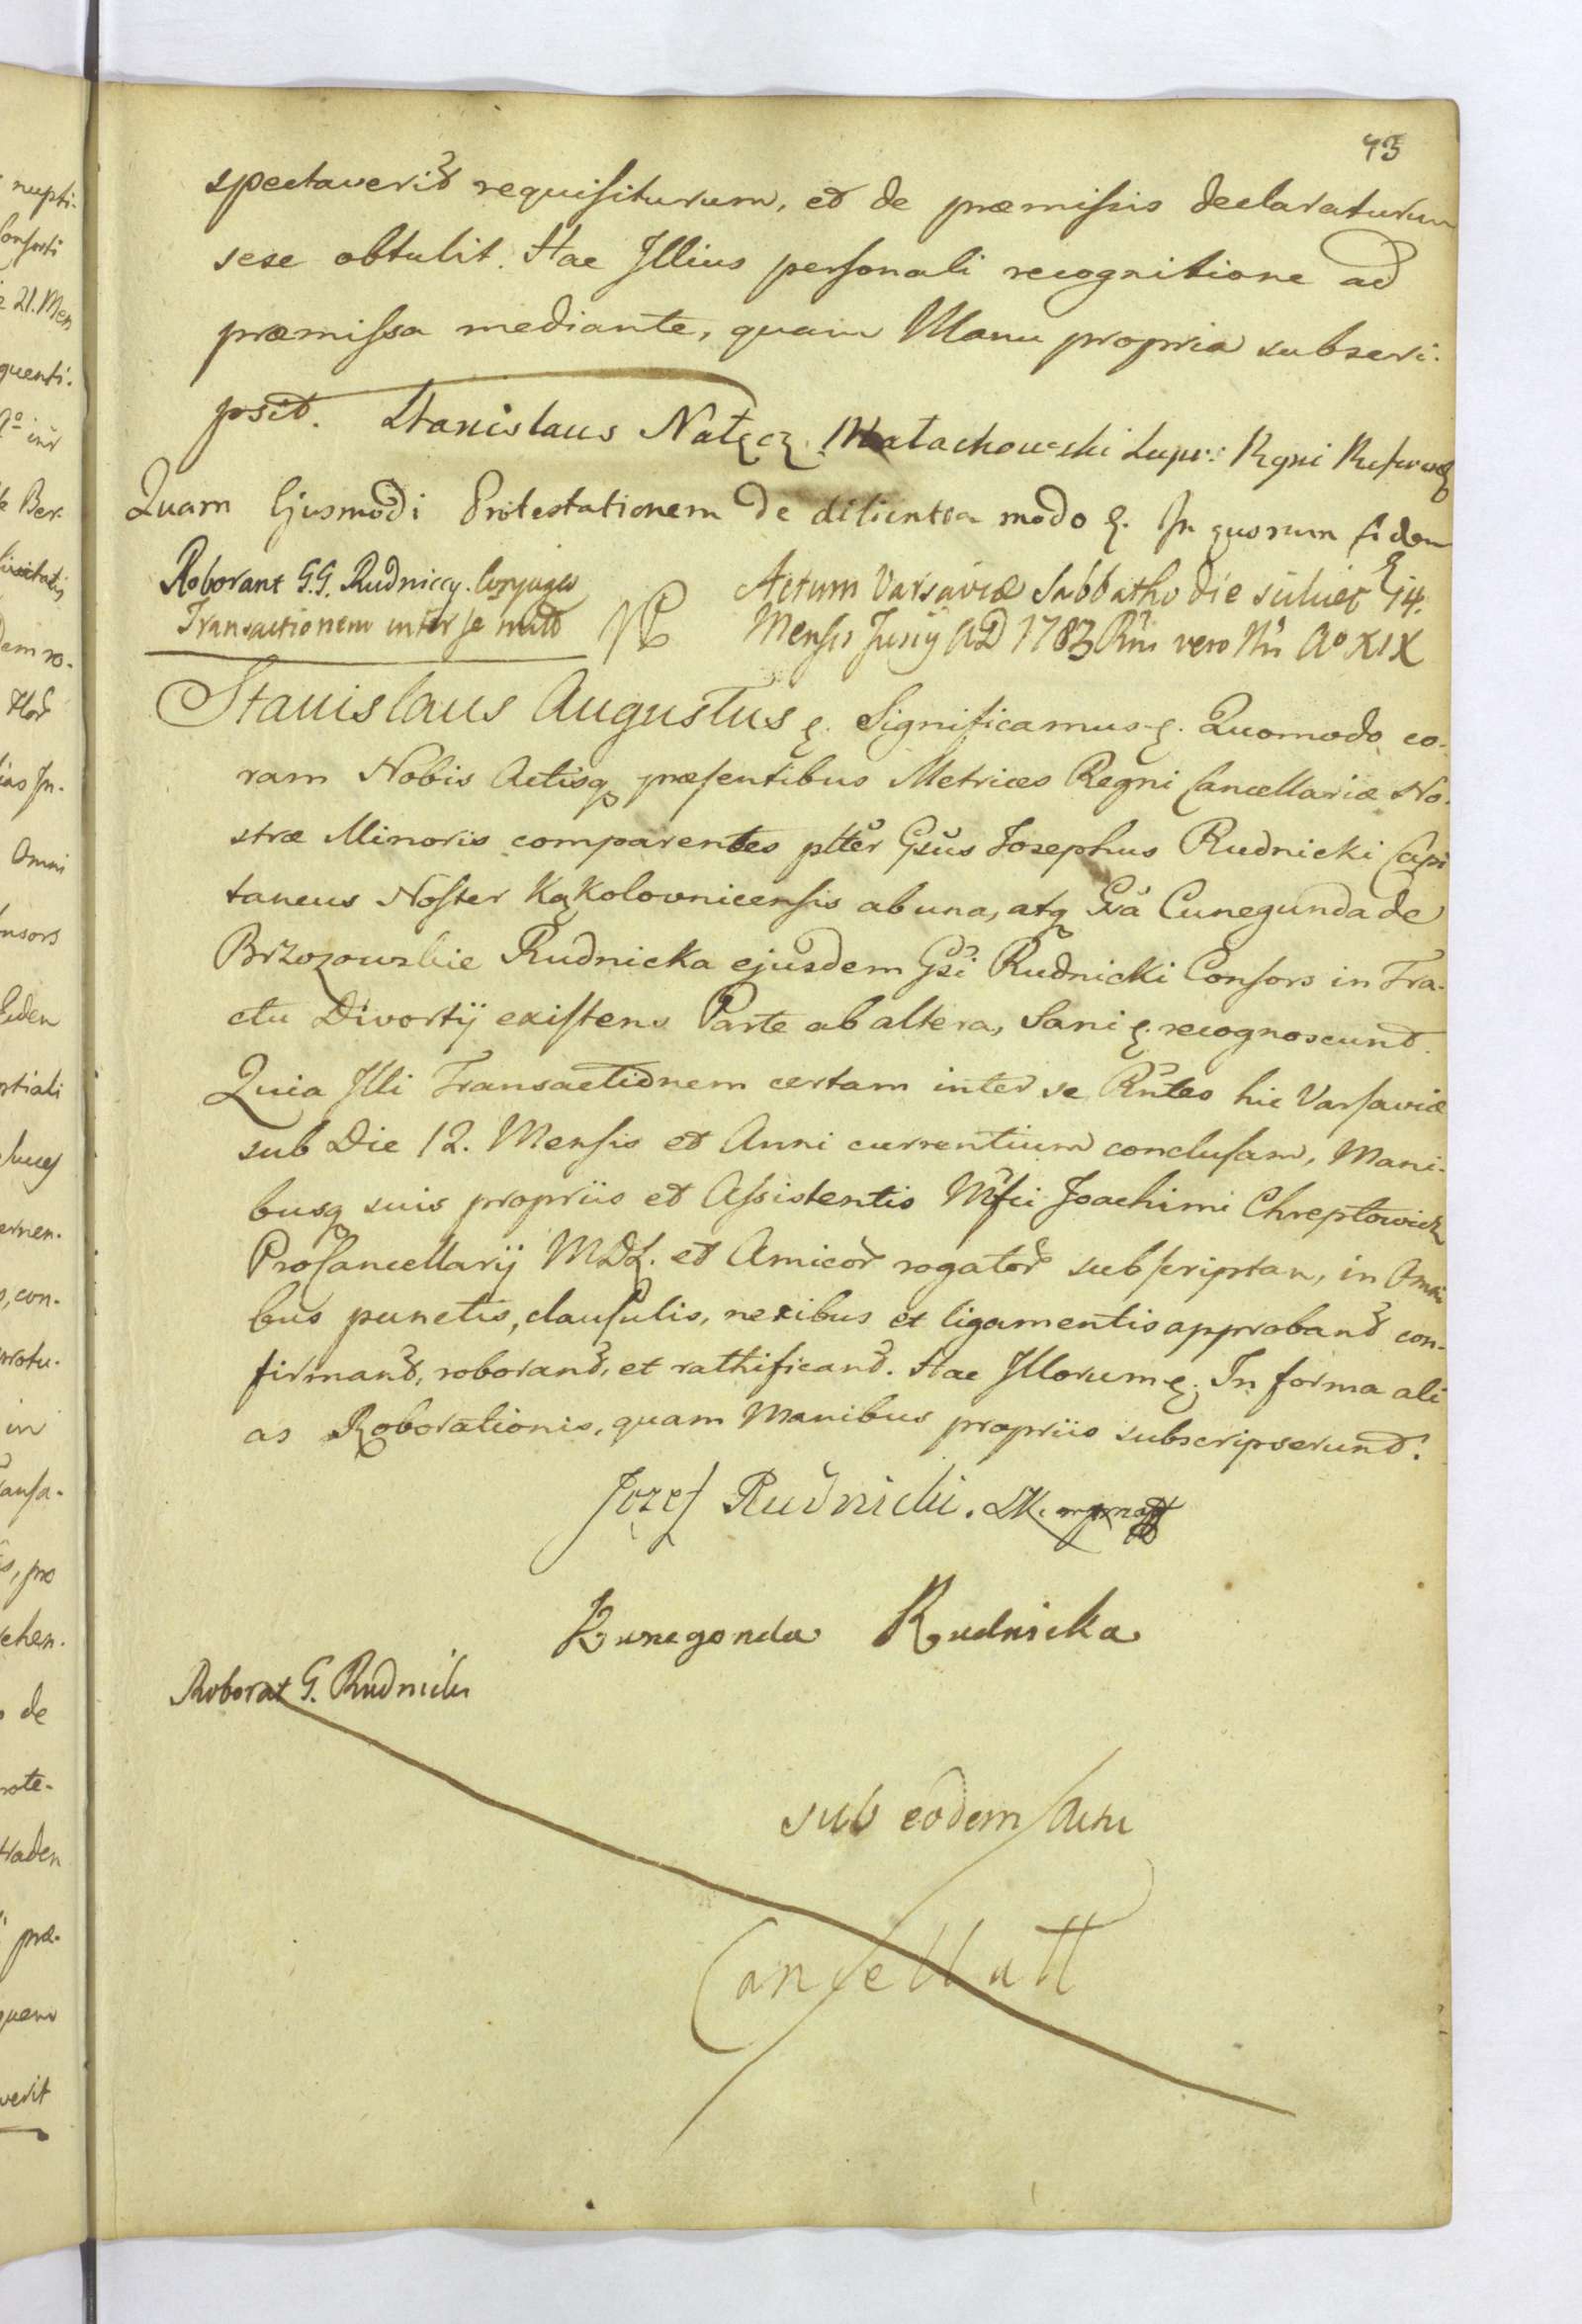 43
spectaverit requisiturum, et de præmissis declaraturum
sese obtulit. Hac Illius personali recognitione ad
præmissa mediante, quam Manu propria subscri-
psit. Stanislaus Nałęcz Małachowski Supr: Regni
Quam Ejusmodi Protestationem de modo &. In quorum fidem &
Roborant G.G. Rudniccy. Conjuges
Transactionem inter se
Actum Varsaviæ Sabbatho die 14.
Mensis Junij AD 1783 Rni vero Nri Aº XIX
Stanislaus Augustus &. Significamus &. Quomodo co-
ram Nobis Actisq præsentibus Metrices Regni Cancellariæ No-
stræ Minoris comparentes pltter Gsus Josephus Rudnicki Capi
taneus Noster Kąkolovnicensis ab una, atq Gsa Cunegunda de
Brzozowskie Rudnicka ejusdem Gsi Rudnicki Consors in Tra-
ctu Divortij existens Parte ab altera, Sani &. recognoscunt.
Quia Illi Transactionem certam inter se Rntes hic Varsaviæ
sub Die 12. Mensis et Anni currentium conclusam, Mani-
busq suis propriis et Assistentis Mfci Joachimi Chreptowicz
ProCancellarij MDL. et Amicor rogator subscriptam, in Omni
bus punctis, clausulis, nexibus et ligamentis approband con-
firmand, roborand, et rathificand. Hac Illorum &. In forma ali
as Roborationis, quam Manibus propriis subscripserunt.
Jozef Rudnicki. SK.
Kunegonda Rudnicka
Roborat G. Rudnicki
sub eodem Actu
Cancellatt